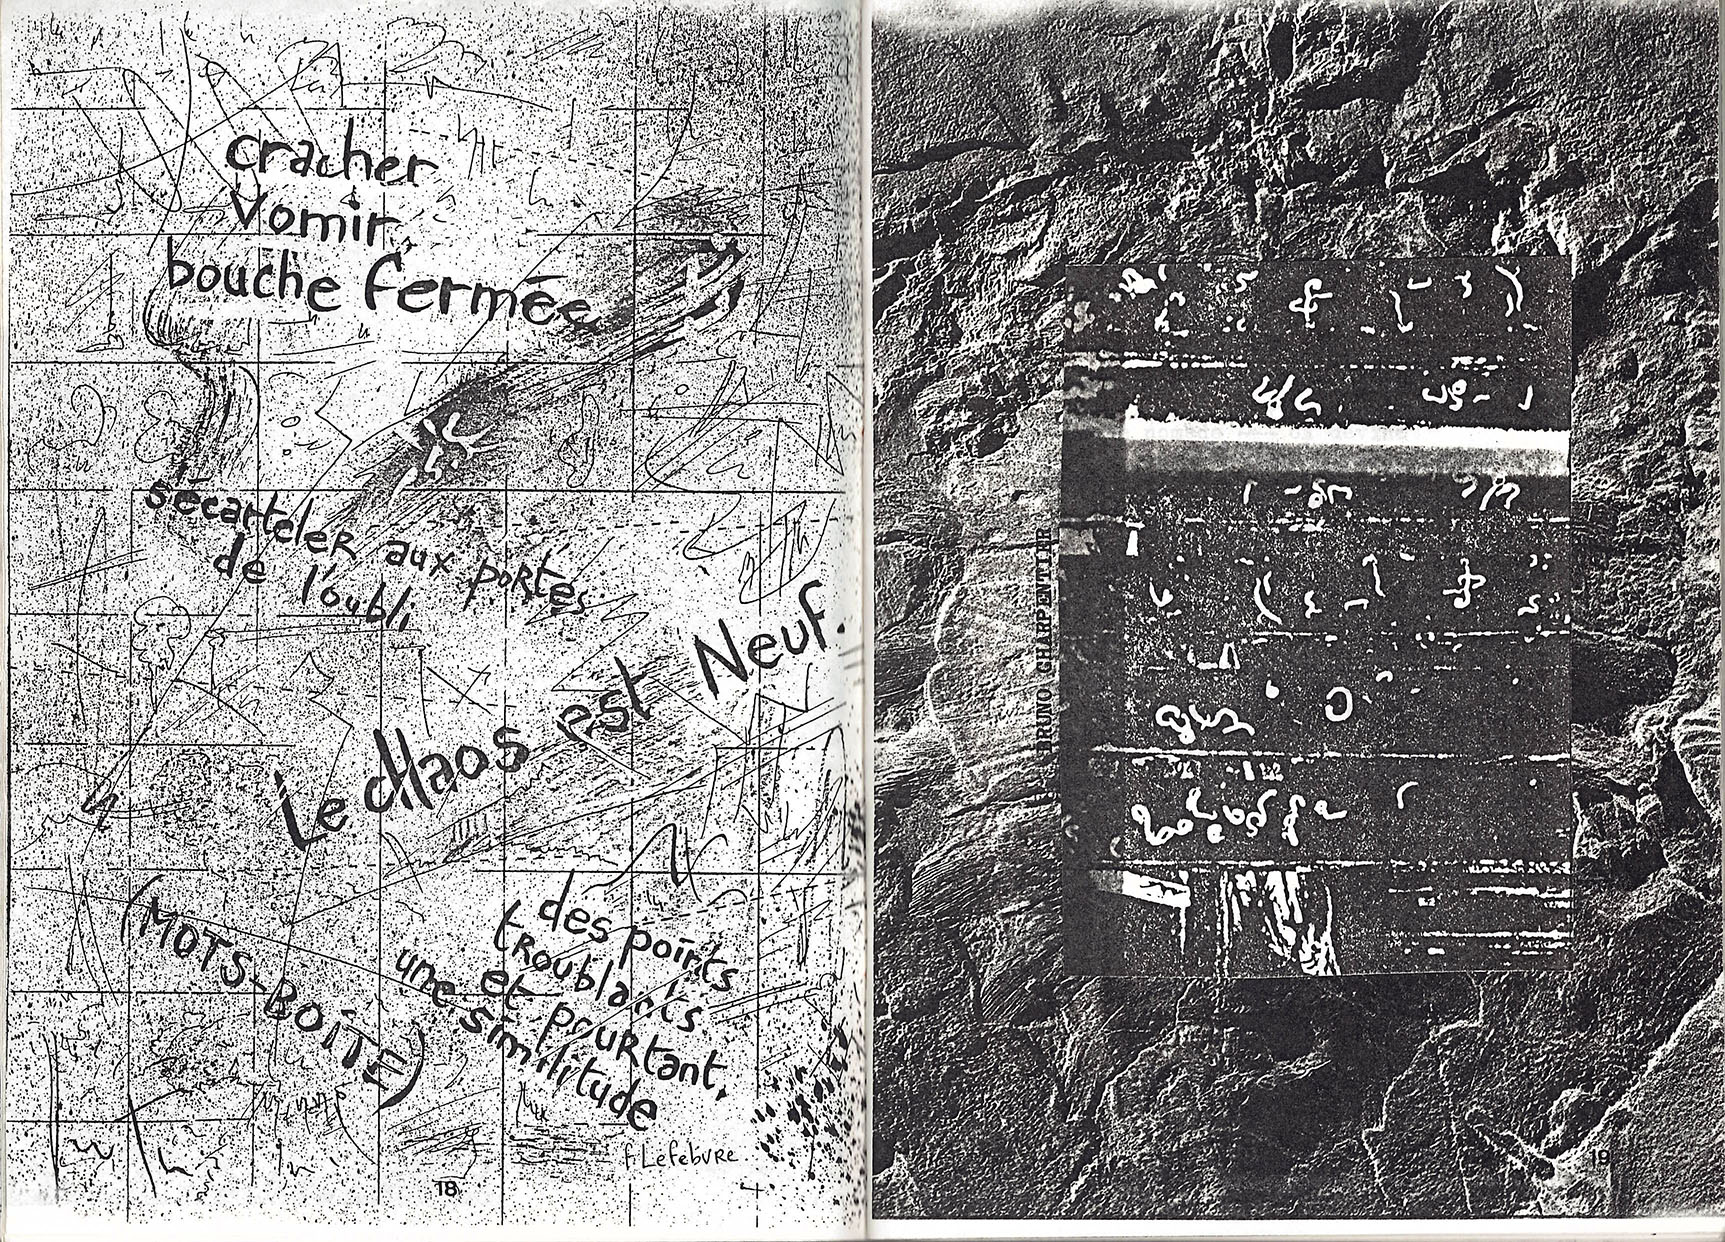 cracher
Vomir
bouche fermée
sécarteler aux portes
de l'oubli
Le cHaos est Neuf.
(MOTS-BOÎTE)
des points
troublants
et pourtant,
une similitude
f. Lefebvre
18
BRUNO CHARPENTIER
19